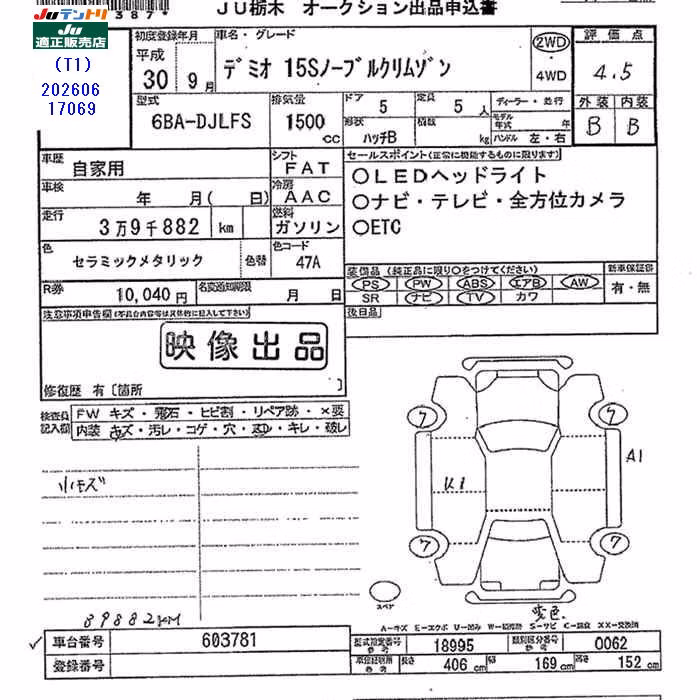 387*
JU栃木 オークション出品申込書
Juテントリ
Ju
適正販売店
(T1)
202606
17069
初度登録年月
車名・グレード
平成
30 9月
デミオ 15Sノーブルクリムゾン
2WD
4WD
評価点
4.5
外装 内装
B B
型式
6BA-DJLFS
排気量
1500 cc
ドア
5
定員
5人
形状
ハッチB
積載
kg
ディーラー・並行
モデル年式 年
ハンドル 左・右
車歴
自家用
シフト
FAT
車検
年 月( 日)
冷房
AAC
走行
3万9千882 km
燃料
ガソリン
色
セラミックメタリック
色替
色コード
47A
R券
10,040円
名変通知期限
月 日
セールスポイント(正常に機能するものに限ります)
○LEDヘッドライト
○ナビ・テレビ・全方位カメラ
○ETC
装備品(純正品に限り○をつけてください)
PS PW ABS エアB AW
SR ナビ TV カワ
新車保証書
有・無
後日品
注意事項申告欄(本名台内容等は具体的に記入して下さい)
映像出品
修復歴 有〔箇所 〕
検査員記入欄
FW キズ・飛石・ヒビ割・リペア跡・×要
内装 キズ・汚レ・コゲ・穴・凹ミ・キレ・破レ
小キズ
39882KM
7 7
U1
A1
7 7
スペア
変色
A-キズ E-エクボ U-凹み W-補修跡 S-サビ C-腐食 XX-交換済
車台番号
603781
登録番号
型式指定番号 参考
18995
類別区分番号 参考
0062
車検証記載 参考
長さ 406 cm 幅 169 cm 高さ 152 cm